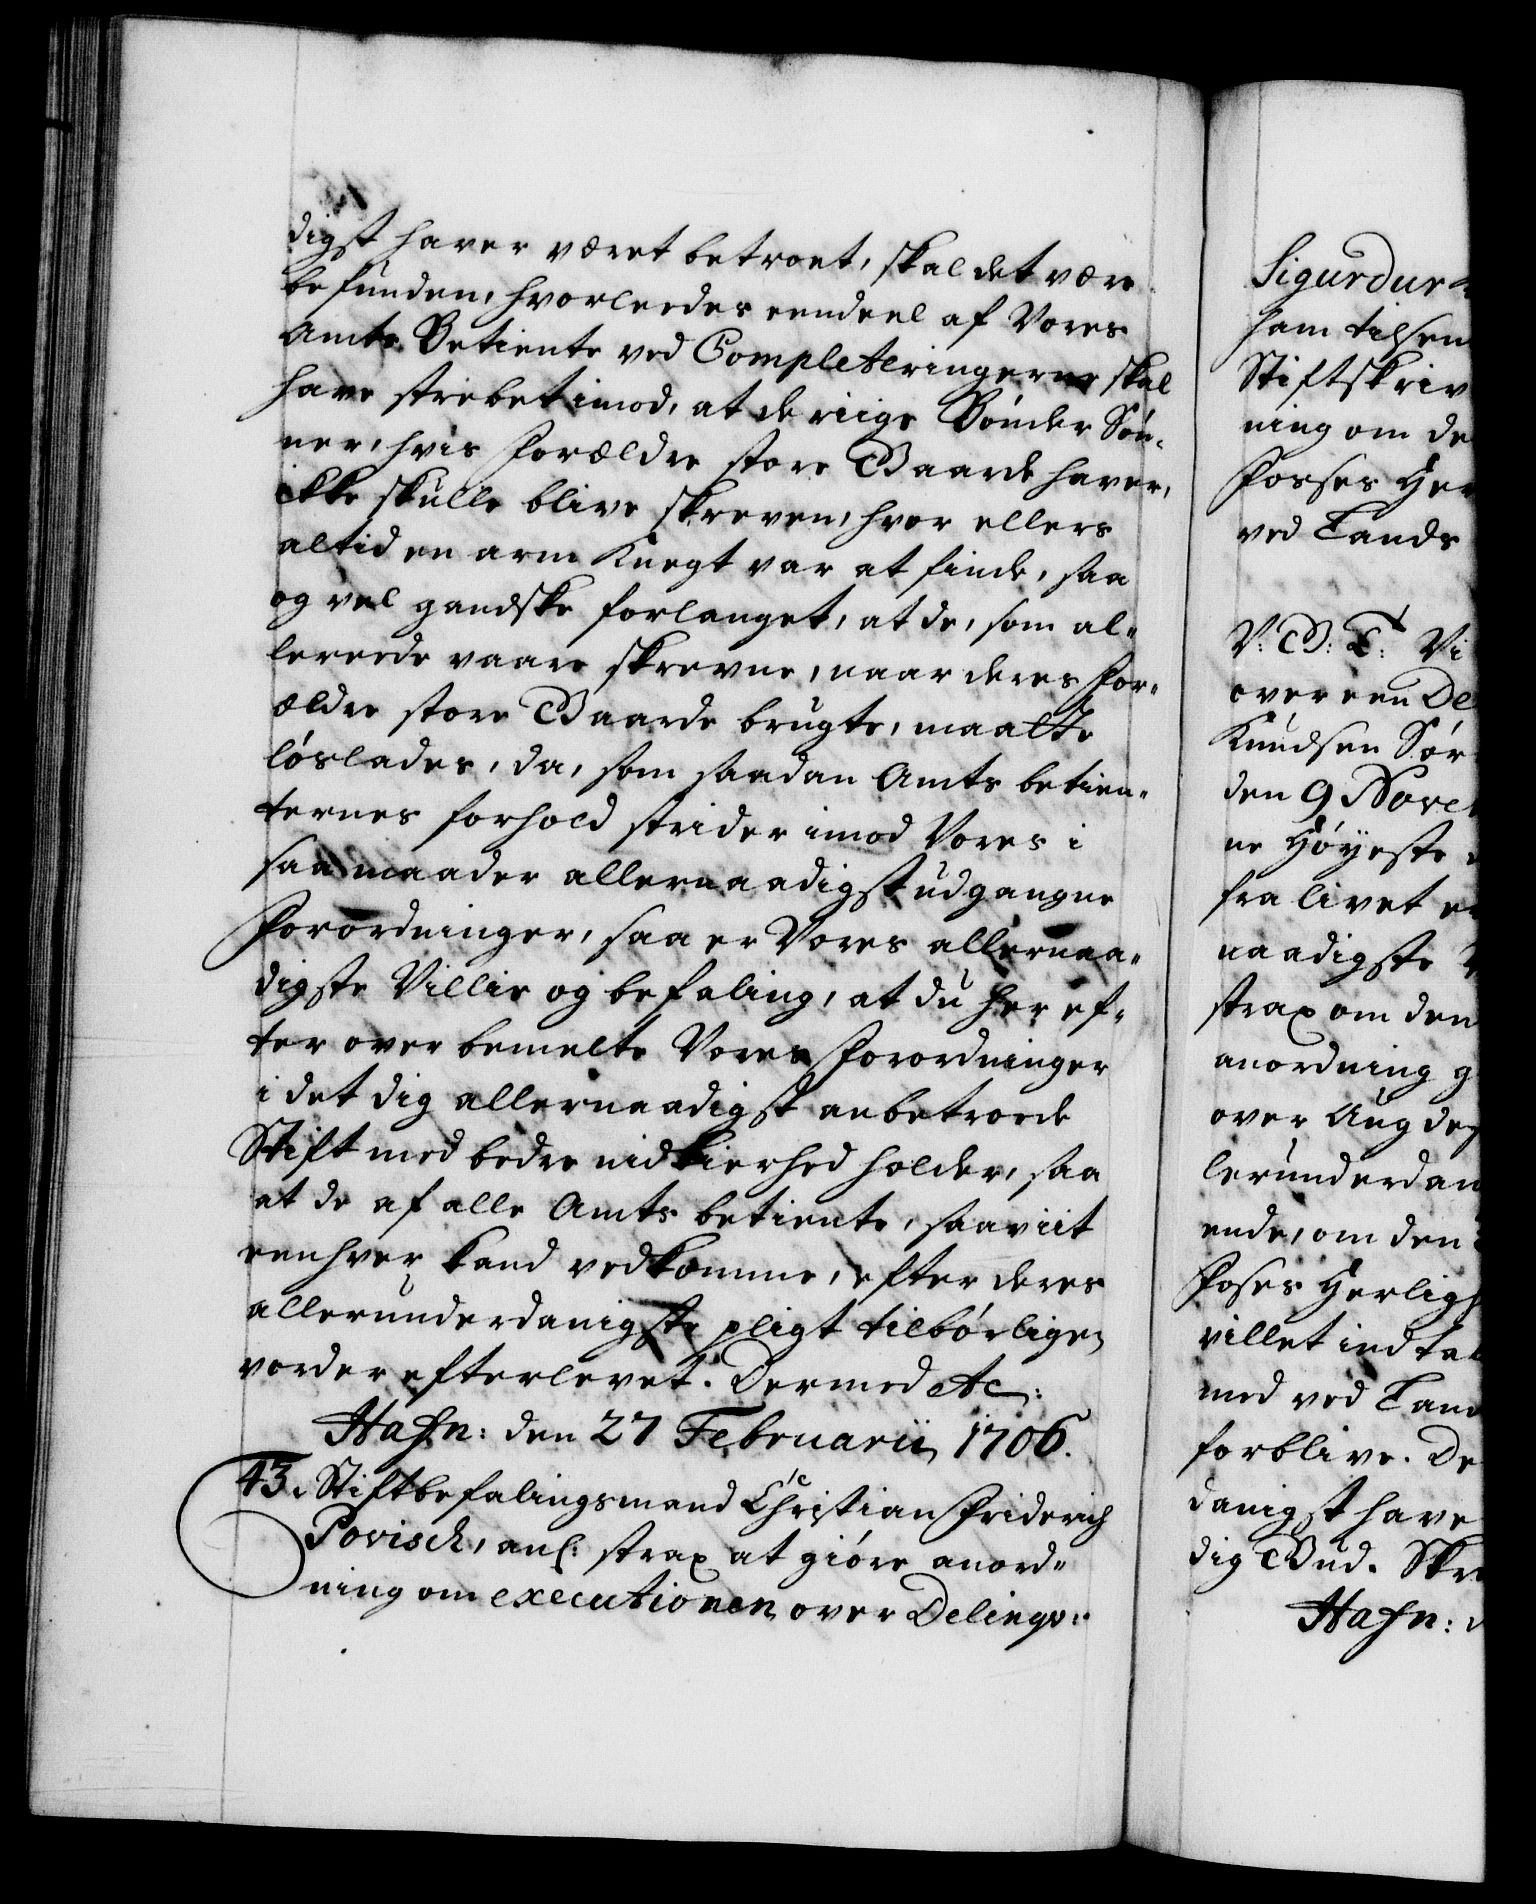 digst haver været betroet, skal det være
befunden, hvorleedes eendeel af Vores
Amts Betiente ved Completeringerne skal
have stræbet imod, at de riige Bønder Søn-
ner, hvis Forældre store Gaarde haver,
ikke skulle blive skreven, hvor ellers
altid en arm Knegt var at finde, saa
og vel gandske forlanget, at de, som al-
lereede vaare skrevne, naar deres For-
ældre store Gaarde brugte, maatte
løslades, da, som saadan Amts betien-
ternes forhold strider imod Vores i
saa maader allernaadigst udgangne
Forordninger, saa er Vores allernaa-
digste Villie og befaling, at du her ef-
ter over bemelte Vores Forordninger
i det dig allernaadigst anbetroede
Stift med bedre nidkierhed holder, saa
at de af alle Amts betiente, saaviit
eenhver kand vedkomme, efter deres
allerunderdanigste pligt tilbørligen
vorder efterlevet. Dermed etc:
Hafn: den 27 Februarii 1706.
43. Stiftbefalingsmand Christian Friderich
Povisch, anl: strax at giøre anord-
ning om executionen over Delinqv:
Sigurdur
ham tilsen
Stiftskriv
ning om de
Fosses Her
ved Lands
V: G: T: Vi
over een De
Knudsen Sør
den 9 Nove
ne Høyeste
fra livet
naadigste
strax om den
anordning g
over Aug de
lerunderdan
ende, om den
Foses Herlig
villet indfal
med ved Lan
forblive. De
danigst have
dig Gud. Skr
Hafn: